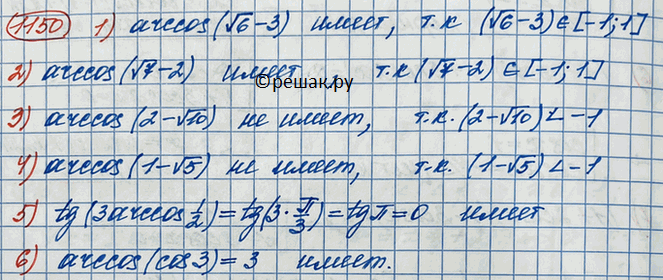 1150 1) arccos(√6-3) имеет, т.к (√6-3)∈[-1;1]
2) arccos(√7-2) имеет т.к (√7-2)∈[-1;1]
©решак.ру
3) arccos(2-√10) не имеет, т.к. (2-√10)<-1
4) arccos(1-√5) не имеет, т.к. (1-√5)<-1
5) tg(3arccos 1/2)=tg(3·π/3)=tgπ=0 имеет
6) arccos(cos3)=3 имеет.